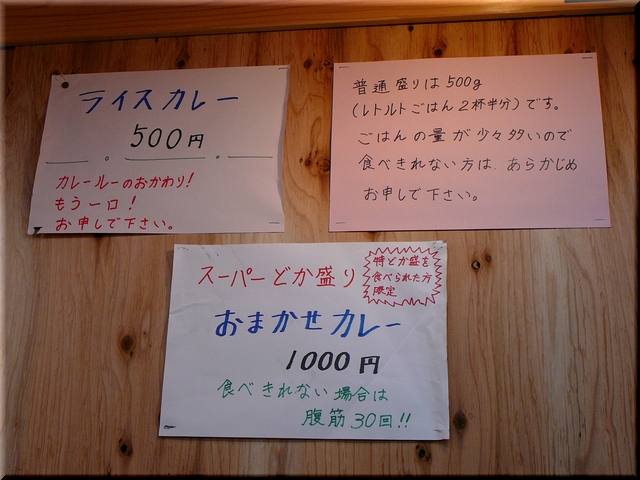 ライスカレー
500円
カレールーのおかわり!
もう一口!
お申しで下さい。
普通盛りは500g
(レトルトごはん2杯半分)です。
ごはんの量が少々多いので
食べきれない方は、あらかじめ
お申しで下さい。
スーパーどか盛り
特どか盛を
食べられた方
限定
おまかせカレー
1000円
食べきれない場合は
腹筋30回!!